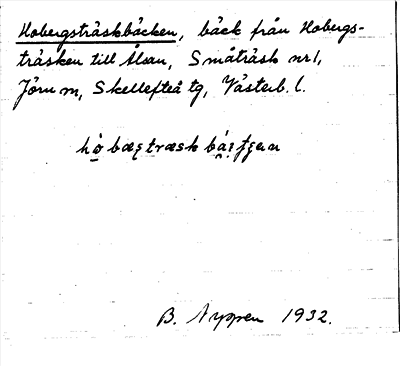 Hobergsträskbäcken, bäck från Hobergs-
träsken till Ålsan, Småträsk nr 1,
Jörn sn, Skellefteå tg, Västerb. l.
B. Nyppen 1932.